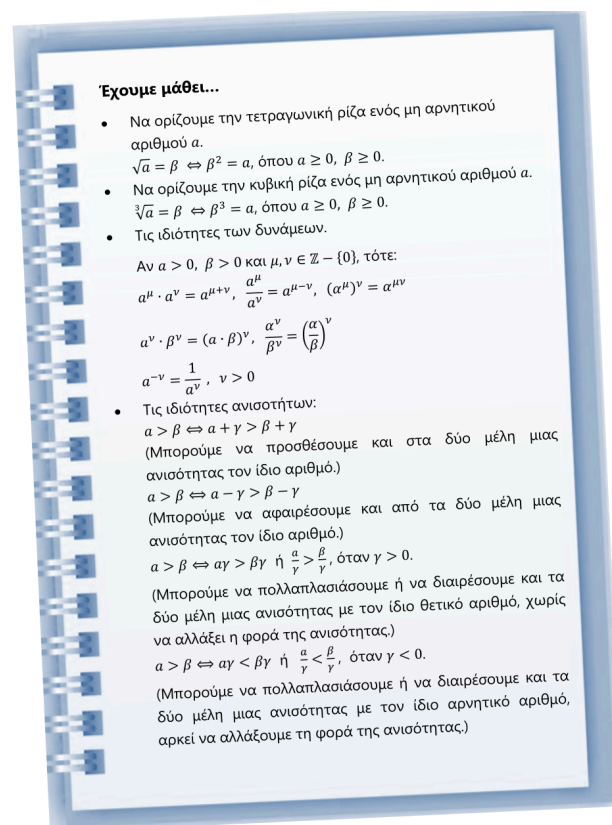 Έχουμε μάθει...
• Να ορίζουμε την τετραγωνική ρίζα ενός μη αρνητικού
αριθμού α.
√α = β ⇔ β² = α, όπου α ≥ 0, β ≥ 0.
• Να ορίζουμε την κυβική ρίζα ενός μη αρνητικού αριθμού α.
∛α = β ⇔ β³ = α, όπου α ≥ 0, β ≥ 0.
• Τις ιδιότητες των δυνάμεων.
Αν α > 0, β > 0 και μ, ν ∈ ℤ − {0}, τότε:
α^μ · α^ν = α^(μ+ν), α^μ/α^ν = α^(μ−ν), (α^μ)^ν = α^(μν)
α^ν · β^ν = (α · β)^ν, α^ν/β^ν = (α/β)^ν
α^(−ν) = 1/α^ν , ν > 0
• Τις ιδιότητες ανισοτήτων:
α > β ⇔ α + γ > β + γ
(Μπορούμε να προσθέσουμε και στα δύο μέλη μιας
ανισότητας τον ίδιο αριθμό.)
α > β ⇔ α − γ > β − γ
(Μπορούμε να αφαιρέσουμε και από τα δύο μέλη μιας
ανισότητας τον ίδιο αριθμό.)
α > β ⇔ αγ > βγ ή α/γ > β/γ, όταν γ > 0.
(Μπορούμε να πολλαπλασιάσουμε ή να διαιρέσουμε και τα
δύο μέλη μιας ανισότητας με τον ίδιο θετικό αριθμό, χωρίς
να αλλάξει η φορά της ανισότητας.)
α > β ⇔ αγ < βγ ή α/γ < β/γ, όταν γ < 0.
(Μπορούμε να πολλαπλασιάσουμε ή να διαιρέσουμε και τα
δύο μέλη μιας ανισότητας με τον ίδιο αρνητικό αριθμό,
αρκεί να αλλάξουμε τη φορά της ανισότητας.)